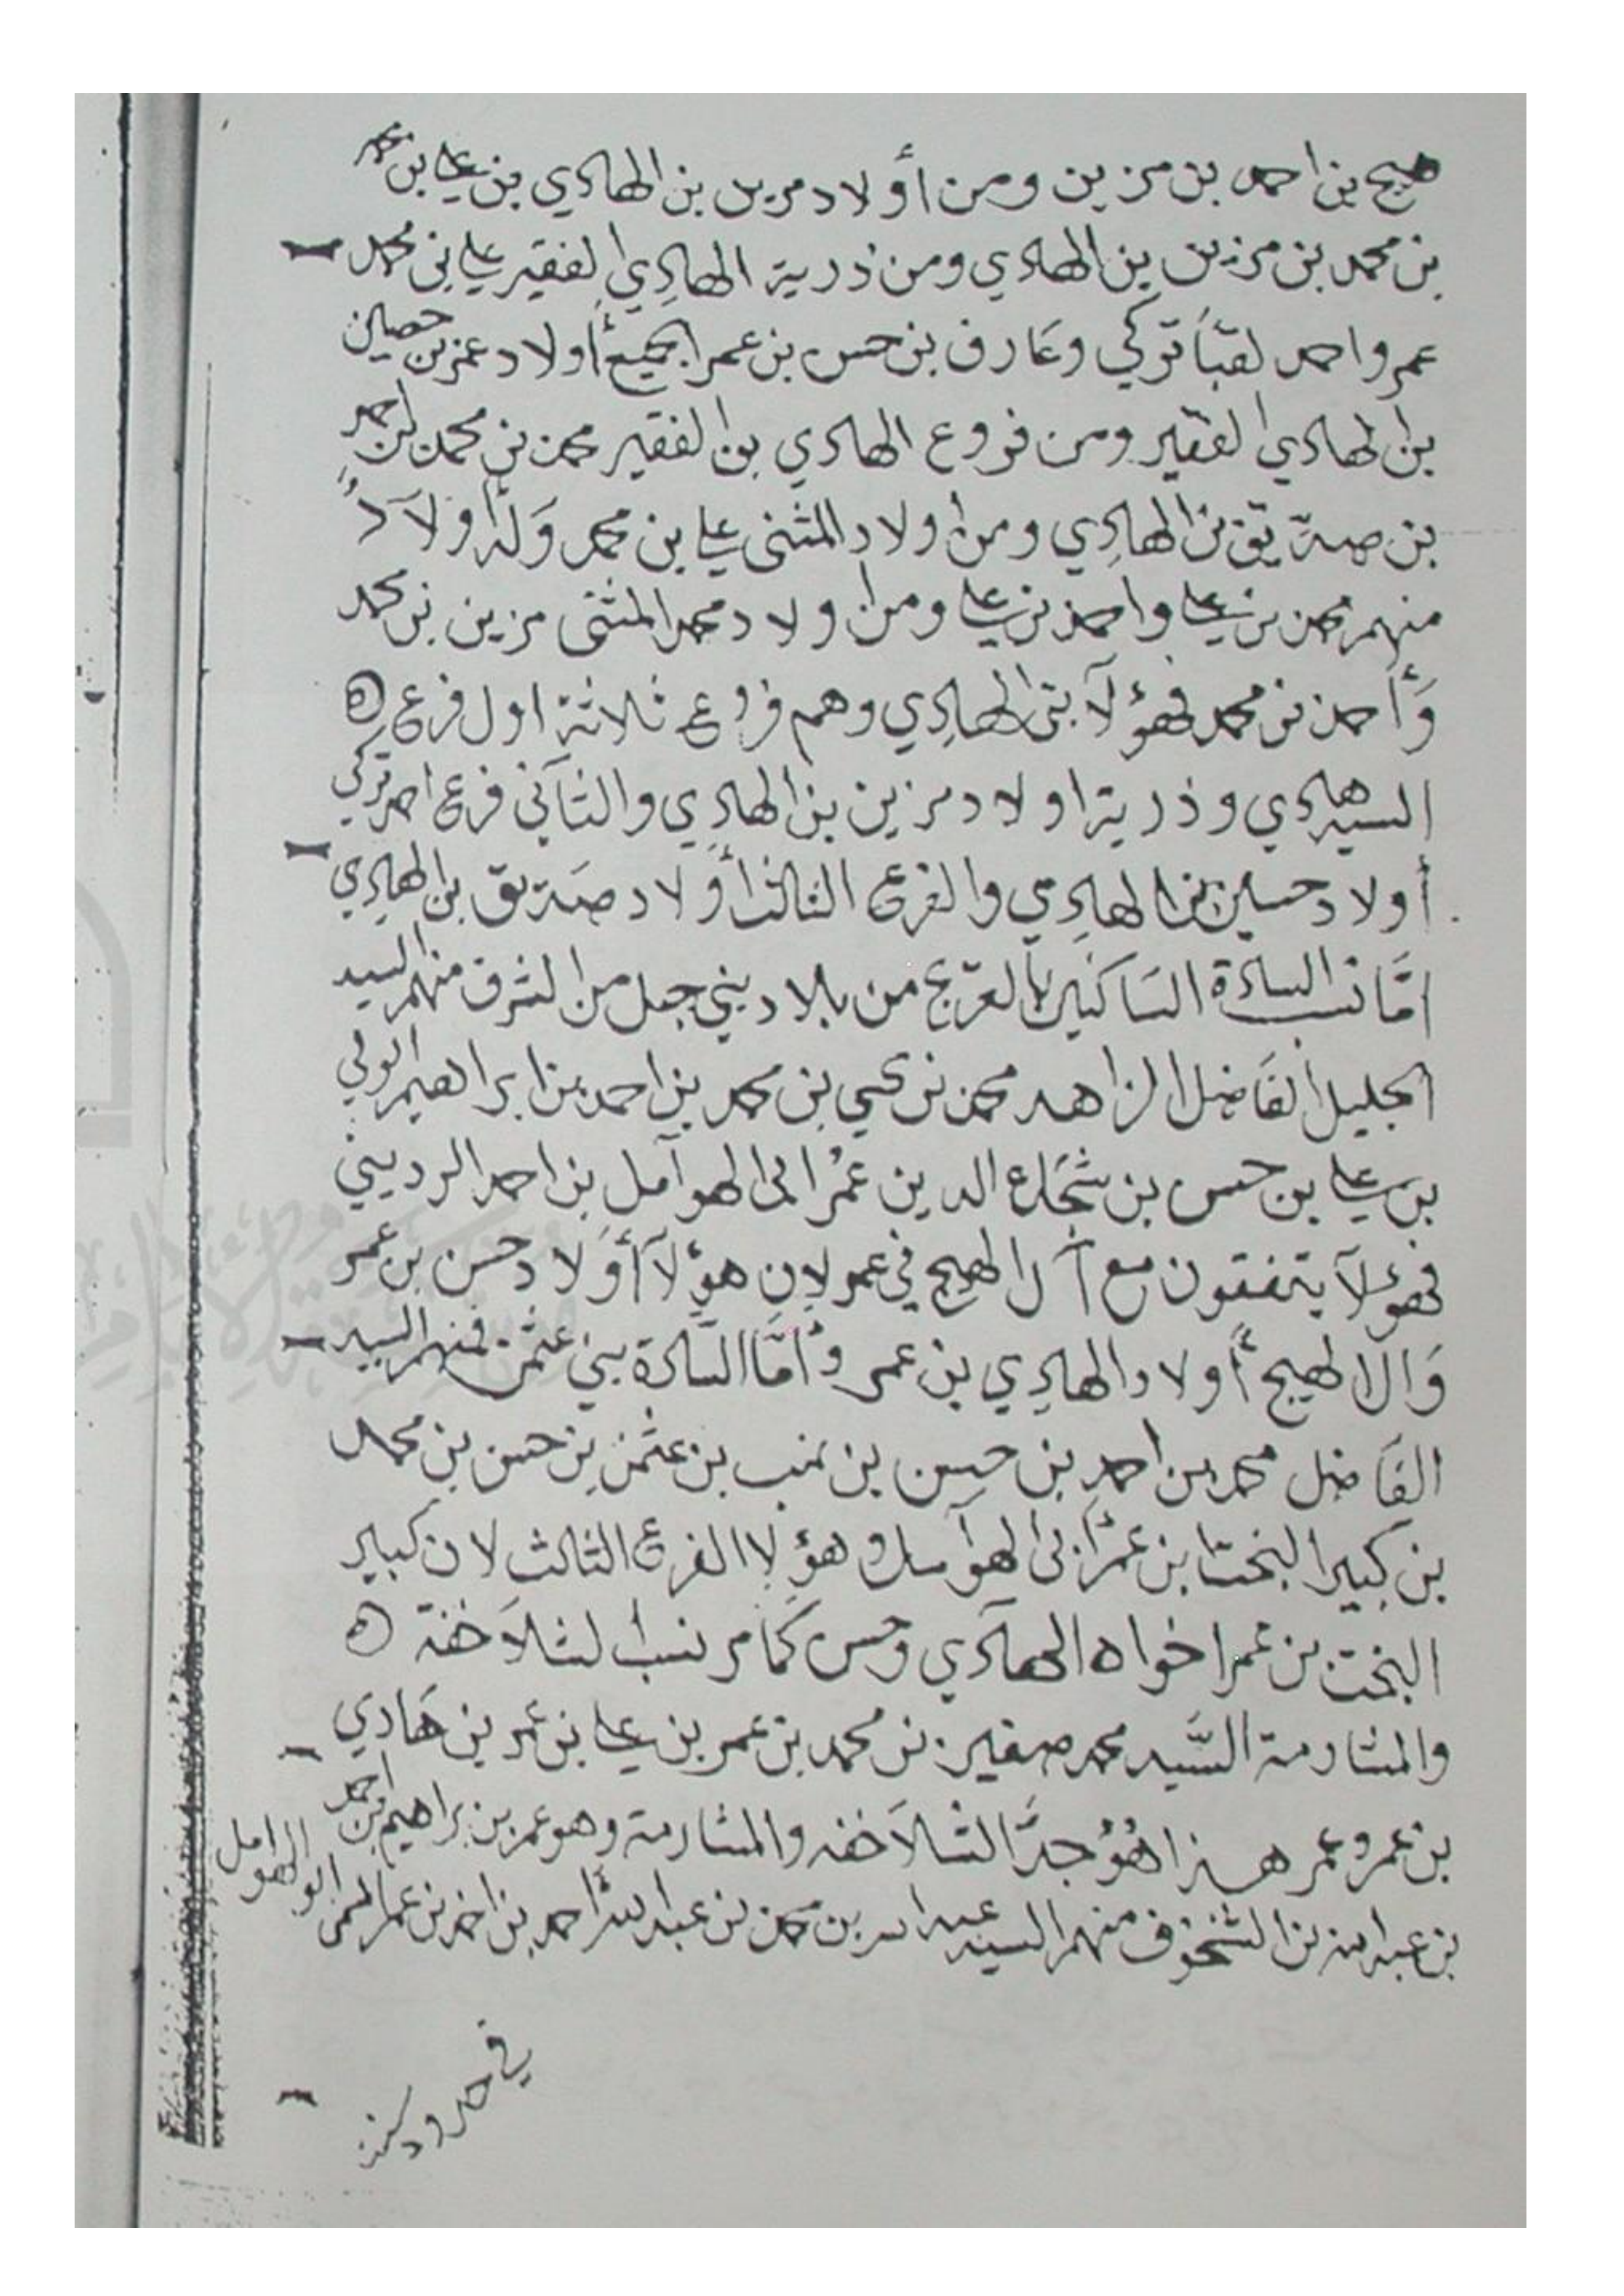 هيج بن احمد بن مزين ومن أولاد مزين بن الهادي بن علي بن عمر
بن محمد بن مزين بن الهادي ومن ذرية الهادي الفقير علي بن محمد
عمر واحمد لقباً تركي وعارف بن حسن بن عمر الجميع أولاد عمر بن حسين
بن الهادي الفقير ومن فروع الهادي بن الفقير محمد بن محمد بن احمد
بن صديق بن الهادي ومن اولاد المثنى علي بن محمد وَله اولاَدٌ
منهم محمد بن علي واحمد بن علي ومن اولاد محمد المثنى مزين بن محمد
وَأحمد بن محمد فهؤلآ بنى الهادِي وهم فروع ثلاثة اول فرع
السيد هادي وذرية اولاد مزين بن الهادِي والثاني فرع احمد تركي
أولاد حسين بن الهادِي والفرع الثالث أوْلاد صديق بن الهادِي
امَّا نسب السادة السَاكنين بالعرّيج من بلاد بني جبل من الشرف منهم السيد
الجليل الفاضل الزاهد محمد بن يحيى بن محمد بن احمد بن ابراهيم الولي
بن علي بن حسن بن شجاع الدين عمُر ابى الهوآمل بن احمد الرديني
فهؤلآ يتفقون مع آل الهيج في عمر لان هؤلآ أوَلاد حسن بن عمر
وَآل الهيج أولاد الهادِي بن عمر وُأمَّا السَّادة بني عثمن فمنهم السيد
الفاضل محمد بن احمد بن حسين بن بن عثمن بن حسن بن محمد
بن كبير البخت بن عمر ابى الهوآمل وهؤلا الفرع الثالث لان كبير
البخت بن عمر اخواه الهادي وحسن كما مر نسب الشلاَخفة
والمشارمة السَّيد محمد صغير بن محمد بن عمر بن علي بن عمر بن هَادي
بن عمر وعمر هذا هُوُ جدَّ الشلاَخفه والمشارمة وهو عمر بن ابراهيم بن احمد
بن عبدالله بن الشخوف منهم السيد عبدالله بن محمد بن عبدالله احمد بن احمد بن عمر المكنى ابو الهوامل
في حدود سنة